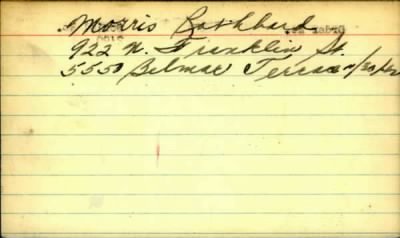 Morris Rothbard
922 N. Franklin St.
5550 Belmar Terrace